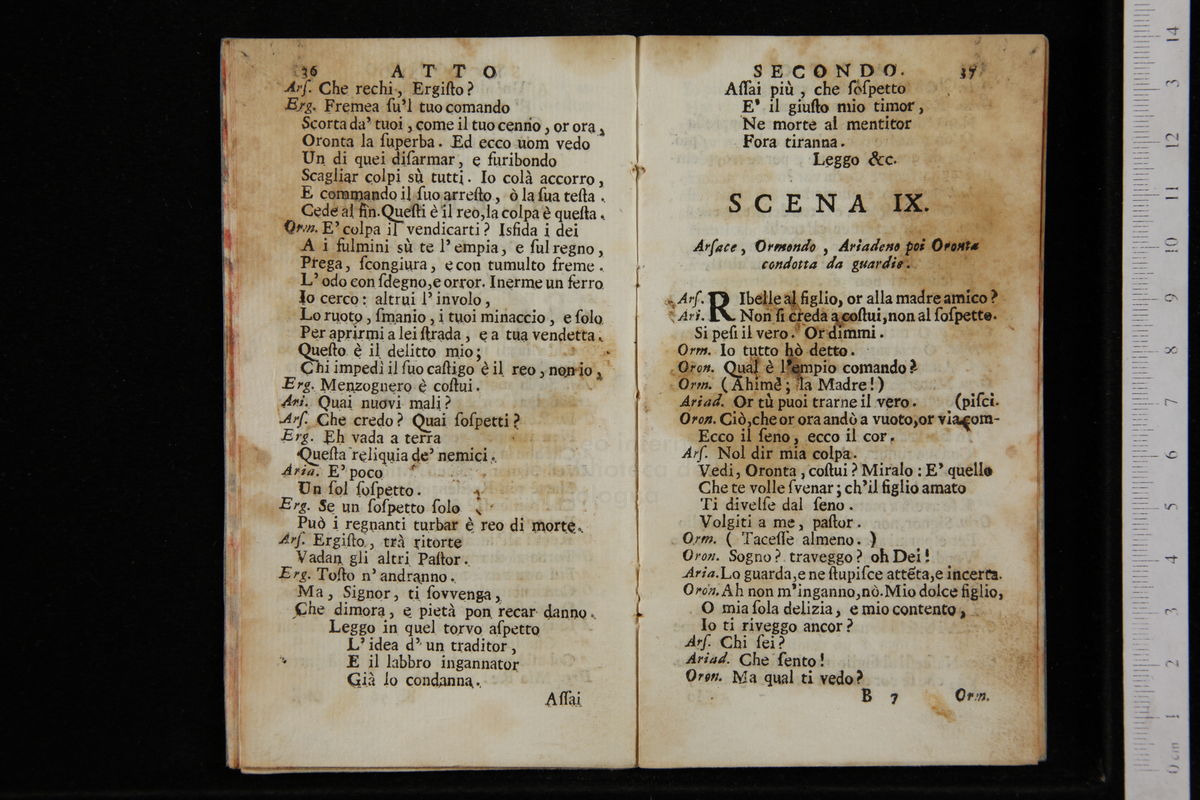 36 ATTO
Arſ. Che rechi, Ergiſto?
Erg. Fremea ſu'l tuo comando
Scorta da' tuoi, come il tuo cenno, or ora,
Oronta la ſuperba. Ed ecco uom vedo
Un di quei diſarmar, e furibondo
Scagliar colpi sù tutti. Io colà accorro,
E commando il ſuo arreſto, ò la ſua teſta.
Cede al fin. Queſti è il reo, la colpa è queſta.
Orm. E' colpa il vendicarti? Isfida i dei
A i fulmini sù te l'empia, e ſul regno,
Prega, ſcongiura, e con tumulto freme.
L'odo con ſdegno, e orror. Inerme un ferro
Io cerco: altrui l'involo,
Lo ruoto, ſmanio, i tuoi minaccio, e ſolo
Per aprirmi a lei ſtrada, e a tua vendetta.
Queſto è il delitto mio;
Chi impedì il ſuo caſtigo è il reo, non io,
Erg. Menzognero è coſtui.
Ari. Quai nuovi mali?
Arſ. Che credo? Quai ſoſpetti?
Erg. Eh vada a terra
Queſta reliquia de' nemici.
Aria. E' poco
Un ſol ſoſpetto.
Erg. Se un ſoſpetto ſolo
Può i regnanti turbar è reo di morte.
Arſ. Ergiſto, trà ritorte
Vadan gli altri Paſtor.
Erg. Toſto n'andranno.
Ma, Signor, ti ſovvenga,
Che dimora, e pietà pon recar danno.
Leggo in quel torvo aſpetto
L'idea d' un traditor,
E il labbro ingannator
Già lo condanna.
Aſſai
SECONDO. 37
Aſſai più, che ſoſpetto
E' il giuſto mio timor,
Ne morte al mentitor
Fora tiranna.
Leggo &c.
SCENA IX.
Arſace, Ormondo, Ariadeno poi Oronta
condotta da guardie.
Arſ. RIbelle al figlio, or alla madre amico?
Ari. Non ſi creda a coſtui, non al ſoſpetto.
Si peſi il vero. Or dimmi.
Orm. Io tutto hò detto.
Oron. Qual è l'empio comando?
Orm. (Ahimè; la Madre!)
Ariad. Or tù puoi trarne il vero. (piſci.
Oron. Ciò, che or ora andò a vuoto, or via com-
Ecco il ſeno, ecco il cor.
Arſ. Nol dir mia colpa.
Vedi, Oronta, coſtui? Miralo: E' quello
Che te volle ſvenar; ch'il figlio amato
Ti divelſe dal ſeno.
Volgiti a me, paſtor.
Orm. ( Taceſſe almeno. )
Oron. Sogno? traveggo? oh Dei!
Aria. Lo guarda, e ne ſtupiſce attẽta, e incerta.
Oron. Ah non m'inganno, nò. Mio dolce figlio,
O mia ſola delizia, e mio contento,
Io ti riveggo ancor?
Arſ. Chi ſei?
Ariad. Che ſento!
Oron. Ma qual ti vedo?
B 7 Orm.